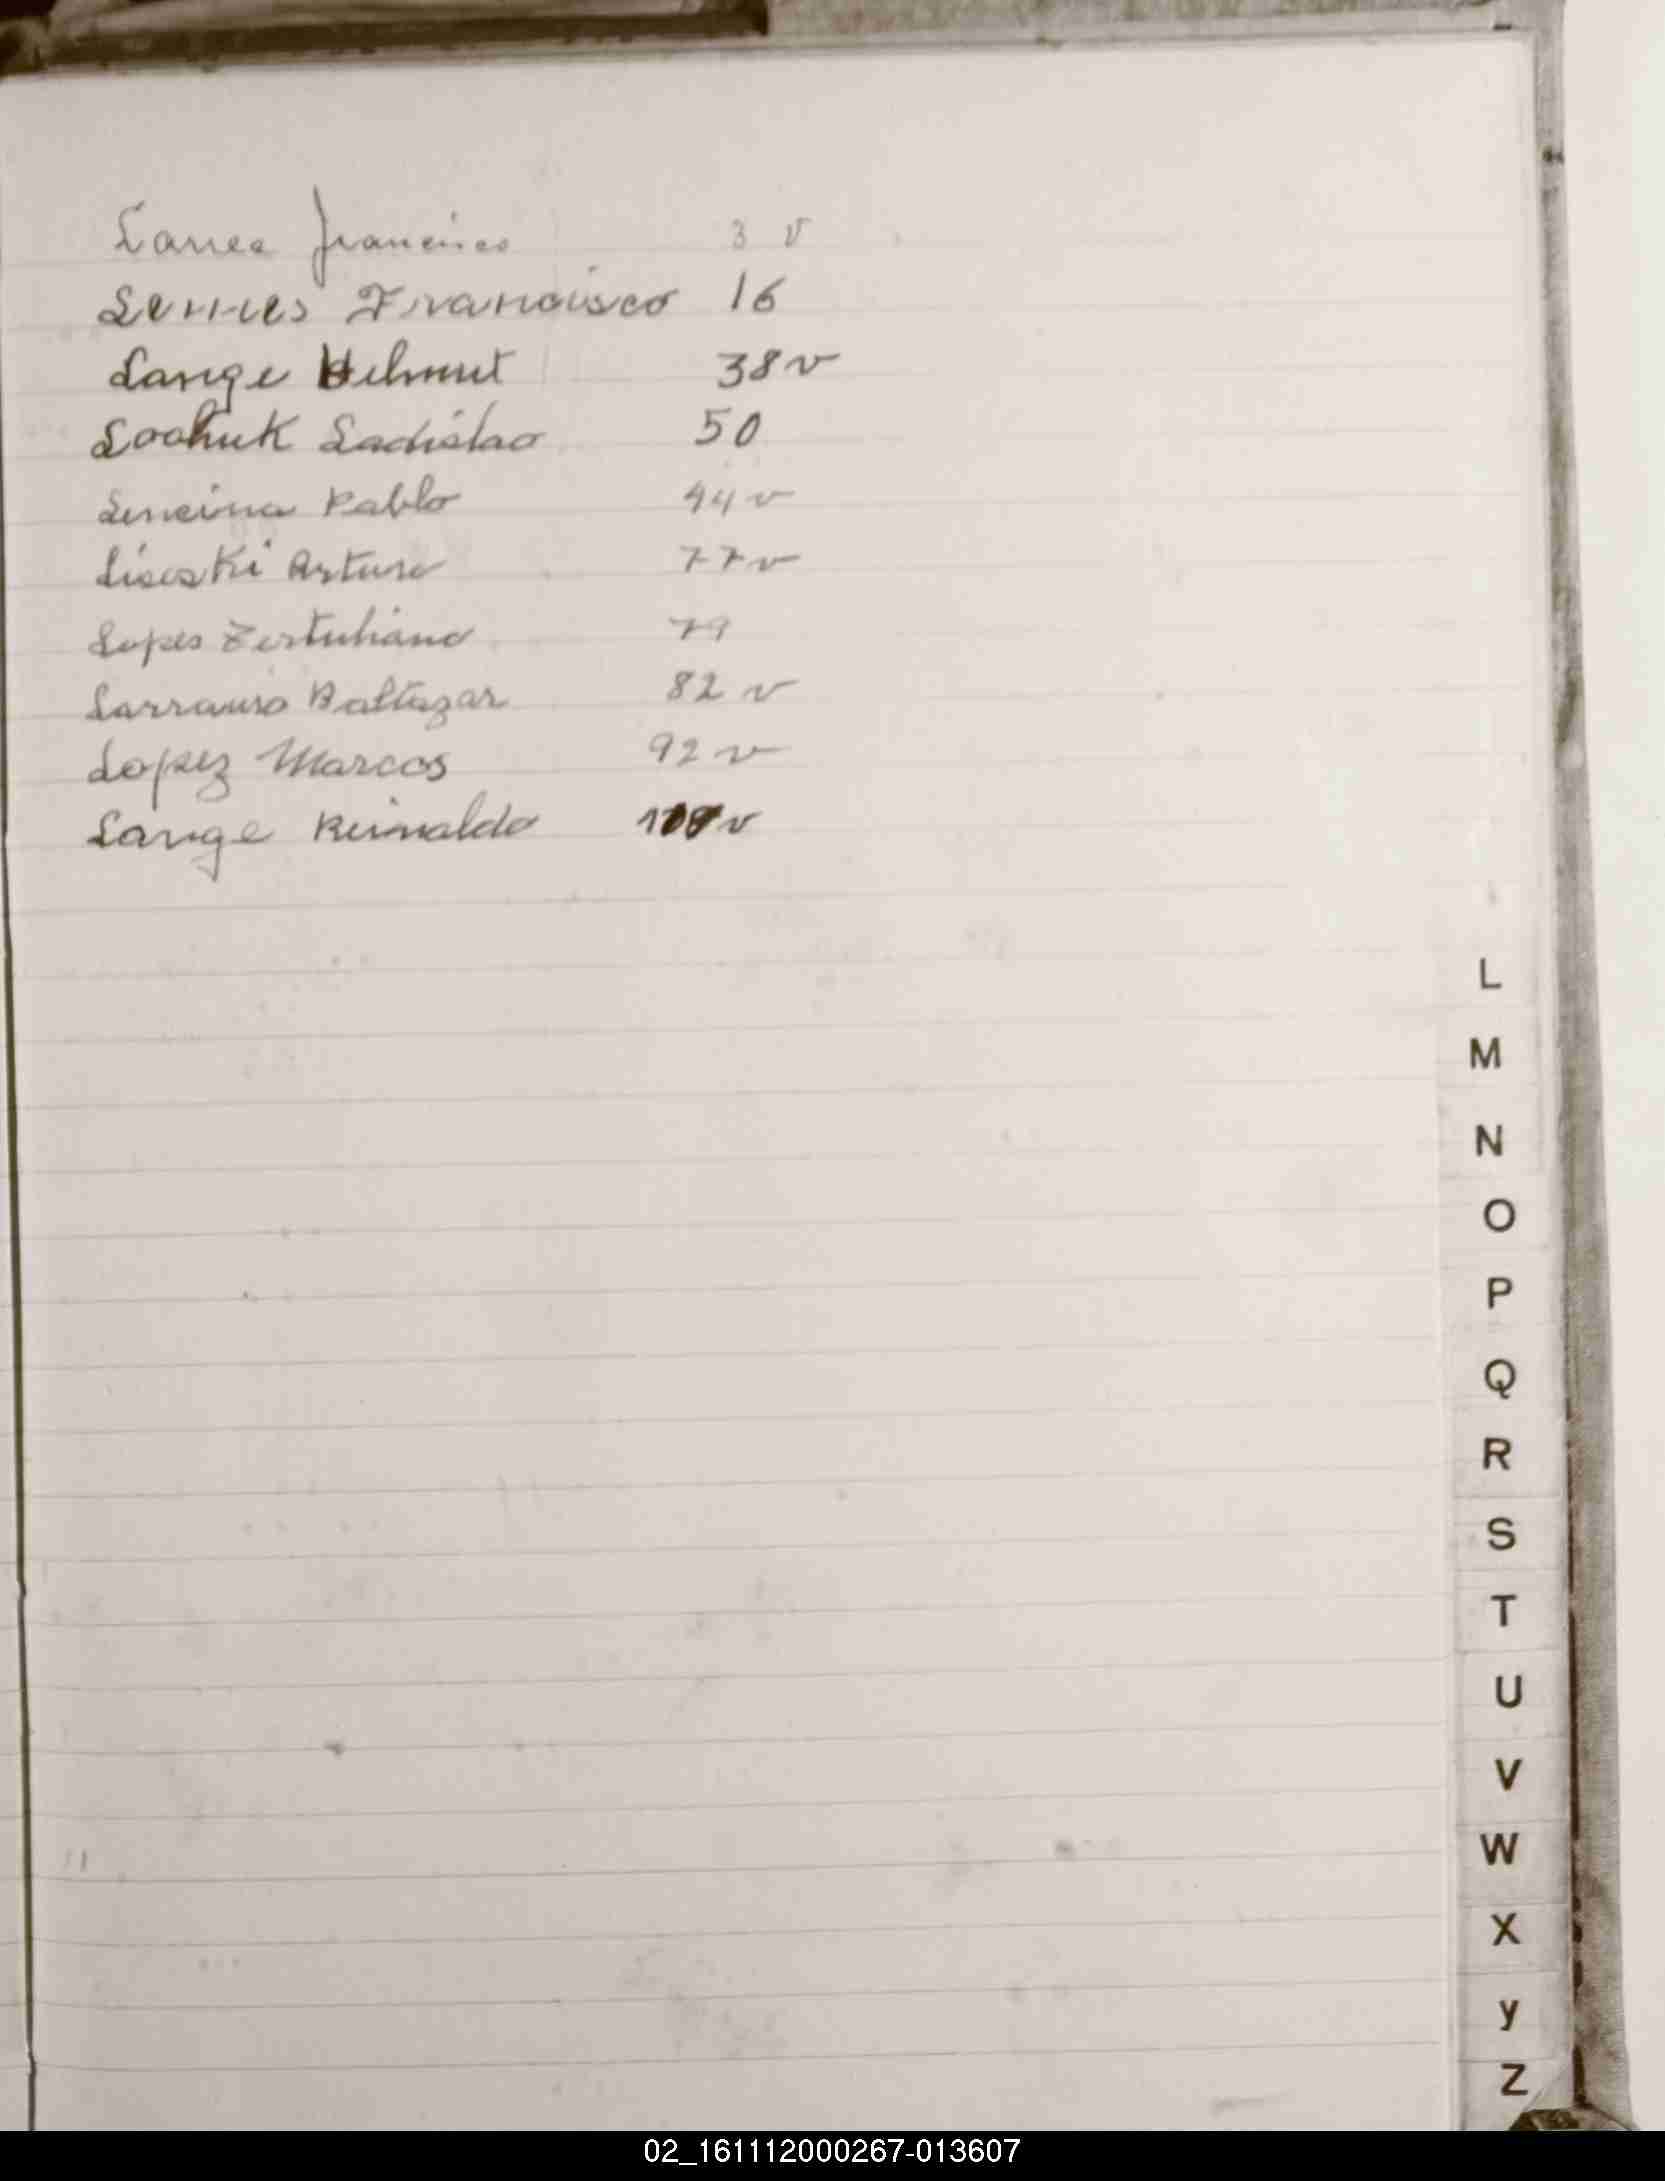 Larrea Francisco 3 v
Lemes Francisco 16
Lange Helmut 38 v
Lochuk Ladislao 50
Lencina Pablo 44 v
Liseski Arturo 77 v
Lopes Tertuliano 79
Larraurio Baltazar 82 v
Lopez Marcos 92 v
Lange Reinaldo
L
M
N
O
P
Q
R
S
T
U
V
W
X
y
Z
02_161112000267-013607